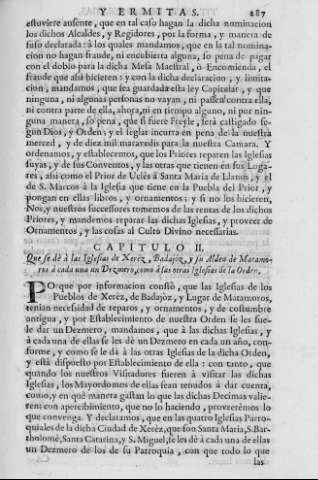 Y ERMITAS. 287
estuviere ausente, que en tal caso hagan la dicha nominacion
los dichos Alcaldes, y Regidores, por la forma, y manera de
suso declarada: à los quales mandamos, que en la tal nomina-
cion no hagan fraude, ni encubierta alguna, so pena de pagar
con el doblo para la dicha Mesa Maestral, ò Encomienda, el
fraude que assi hicieren: y con la dicha declaracion, y limita-
cion, mandamos, que sea guardada esta ley Capitular, y que
ninguna, ni algunas personas no vayan, ni passen contra ella,
ni contra parte de ella, ahora, ni en tiempo alguno, ni por nin-
guna manera, so pena, que si fuere Freyle, serà castigado se-
gun Dios, y Orden; y el seglar incurra en pena de la nuestra
merced, y de diez mil maravedis para la nuestra Camara. Y
ordenamos, y establecemos, que los Priores reparen las Iglesias
suyas, y de sus Conventos, y las otras que tienen en sus Luga-
res, assi como el Prior de Uclès à Santa Maria de Llanos, y el
de S. Marcos à la Iglesia que tiene en la Puebla del Prior, y
pongan en ellas libros, y ornamentos: y si no los hicieren,
Nos, y nuestros successores tomemos de las rentas de los dichos
Priores, y mandemos reparar las dichas Iglesias, y proveer de
Ornamentos, y las cosas al Culto Divino necessarias.
CAPITULO II.
Que se dè à las Iglesias de Xerèz, Badajòz, y su Aldea de Matamo-
ros à cada una un Dezmero, como à las otras Iglesias de la Orden.
POrque por informacion constò, que las Iglesias de los
Pueblos de Xerèz, de Badajòz, y Lugar de Matamoros,
tenian necesidad de reparos, y ornamentos, y de costumbre
antigua, y por Establecimiento de nuestra Orden se les sue-
le dar un Dezmero, mandamos, que à las dichas Iglesias, y
à cada una de ellas se les dè un Dezmero en cada un año, con-
forme, y como se le dà à las otras Iglesias de la dicha Orden,
y està dispuesto por Establecimiento de ella: con tanto, que
quando los nuestros Visitadores fueren à visitar las dichas
Iglesias, los Mayordomos de ellas sean tenudos à dar cuenta,
como, y en què manera gastan lo que las dichas Decimas valie-
ren: con apercibimiento, que no lo haciendo, proveerèmos lo
que convenga. Y declaramos, que en las quatro Iglesias Parro-
quiales de la dicha Ciudad de Xerèz, que son Santa Maria, S. Bar-
tholomè, Santa Catarina, y S. Miguel, se les dè à cada una de ellas
un Dezmero de los de su Parroquia, con que todo lo que
las